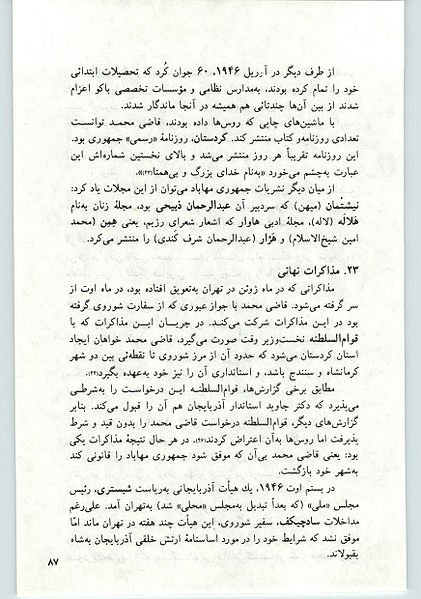 از طرف دیگر در آوریل ۱۹۴۶، ۶۰ جوان کُرد که تحصیلات ابتدائی
خود را تمام کرده بودند، به‌مدارس نظامی و مؤسسات تخصصی باکو اعزام
شدند از بین آن‌ها چندتائی هم همیشه در آنجا ماندگار شدند.
با ماشین‌های چاپی که روس‌ها داده بودند، قاضی محمد توانست
تعدادی روزنامه‌و کتاب منتشر کند. کردستان، روزنامهٔ «رسمی» جمهوری بود.
این روزنامه تقریباً هر روز منتشر می‌شد و بالای نخستین شماره‌اش این
عبارت به‌چشم می‌خورد «به‌نام خدای بزرگ و بی‌همتا»(۲۳).
از میان دیگر نشریات جمهوری مهاباد می‌توان از این مجلات یاد کرد:
نیشتمان (میهن) که سردبیر آن عبدالرحمان ذبیحی بود، مجلهٔ زنان به‌نام
هَلاله (لاله)، مجلهٔ ادبی هاوار که اشعار شعرای رژیم، یعنی هِمِن (محمد
امین شیخ‌الاسلام) و هَژار (عبدالرحمان شرف کندی) را منتشر می‌کرد.
۲۳. مذاکرات نهائی
مذاکراتی که در ماه ژوئن در تهران به‌تعویق افتاده بود، در ماه اوت از
سر گرفته می‌شود. قاضی محمد با جواز عبوری که از سفارت شوروی گرفته
بود در این مذاکرات شرکت می‌کند. در جریان این مذاکرات که با
قوام‌السلطنه نخست‌وزیر وقت صورت می‌گیرد، قاضی محمد خواهان ایجاد
استان کردستان می‌شود که حدود آن از مرز شوروی تا نقطه‌ئی بین دو شهر
کرمانشاه و سنندج باشد، و استانداری آن را نیز خود به‌عهده بگیرد(۲۴).
مطابق برخی گزارش‌ها، قوام‌السلطنه این درخواست را به‌شرطی
می‌پذیرد که دکتر جاوید استاندار آذربایجان هم آن را قبول می‌کند. بنابر
گزارش‌های دیگر، قوام‌السلطنه درخواست قاضی محمد را بدون قید و شرط
پذیرفت اما روس‌ها به‌آن اعتراض کردند(۲۶)، در هر حال نتیجهٔ مذاکرات یکی
بود: یعنی قاضی محمد بی‌آن که موفق شود جمهوری مهاباد را قانونی کند
به‌شهر خود بازگشت.
در بیستم اوت ۱۹۴۶، یك هیأت آذربایجانی به‌ریاست شبستری، رئیس
مجلس «ملی» (که بعداً تبدیل به‌مجلس «محلی» شد) به‌تهران آمد. علی‌رغم
مداخلات سادچیکف، سفیر شوروی، این هیأت چند هفته در تهران ماند امّا
موفق نشد که شرایط خود را در مورد اساسنامهٔ ارتش خلقی آذربایجان به‌شاه
بقبولاند.
۸۷